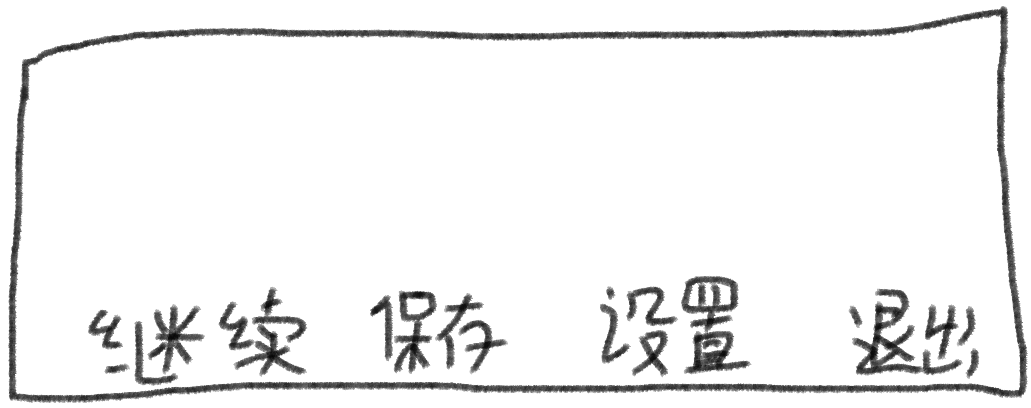 继续 保存 设置 退出